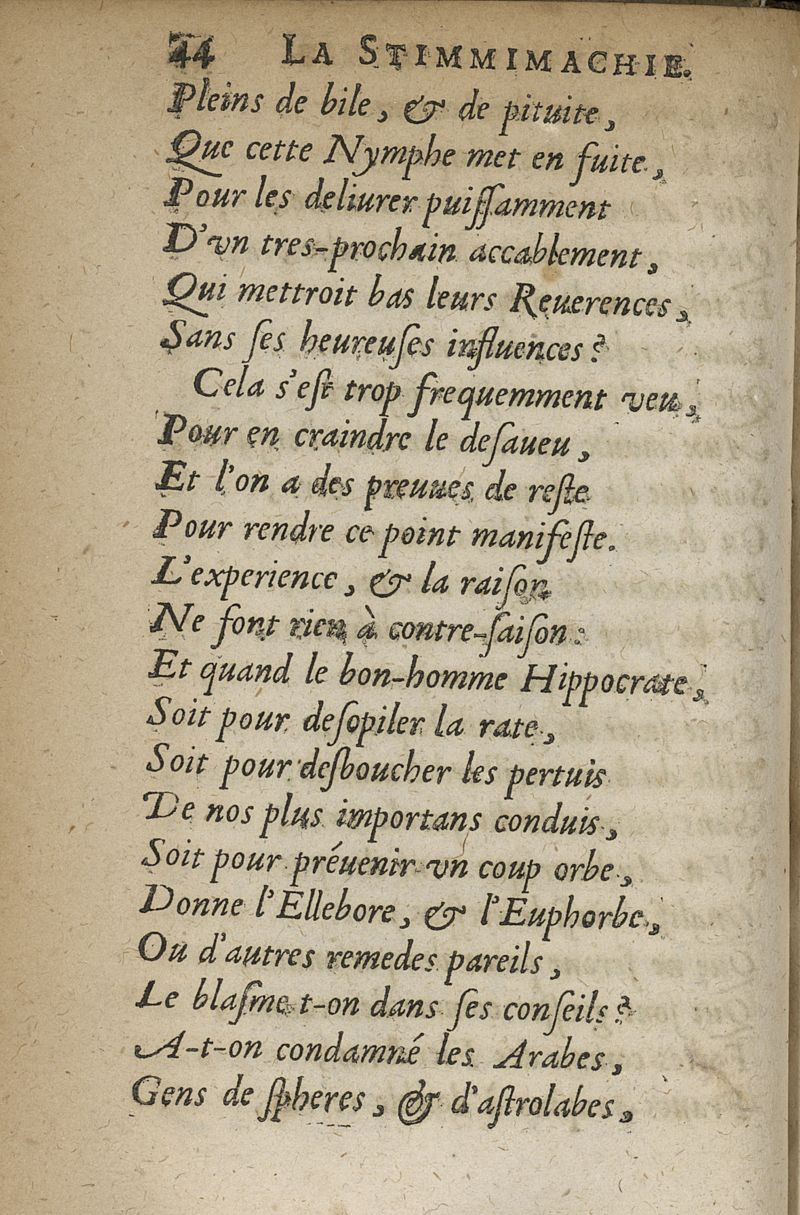 44 LA STIMMIMACHIE.
Pleins de bile, & de pituite,
Que cette Nymphe met en fuite,
Pour les deliurer puiſſamment
D'vn tres-prochain accablement,
Qui mettroit bas leurs Reuerences,
Sans ſes heureuſes influences?
Cela s'eſt trop frequemment veu,
Pour en craindre le deſaueu,
Et l'on a des preuues de reſte
Pour rendre ce point manifeſte.
L'experience, & la raiſon
Ne font rien à contre-ſaiſon:
Et quand le bon-homme Hippocrate,
Soit pour deſopiler la rate,
Soit pour deſboucher les pertuis
De nos plus importans conduis,
Soit pour préuenir vn coup orbe,
Donne l'Ellebore, & l'Euphorbe,
Ou d'autres remedes pareils,
Le blaſme t-on dans ſes conſeils?
A-t-on condamné les Arabes,
Gens de ſpheres, & d'aſtrolabes,